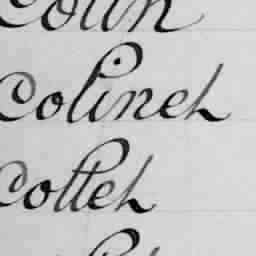 Colin
Colinet
Collet